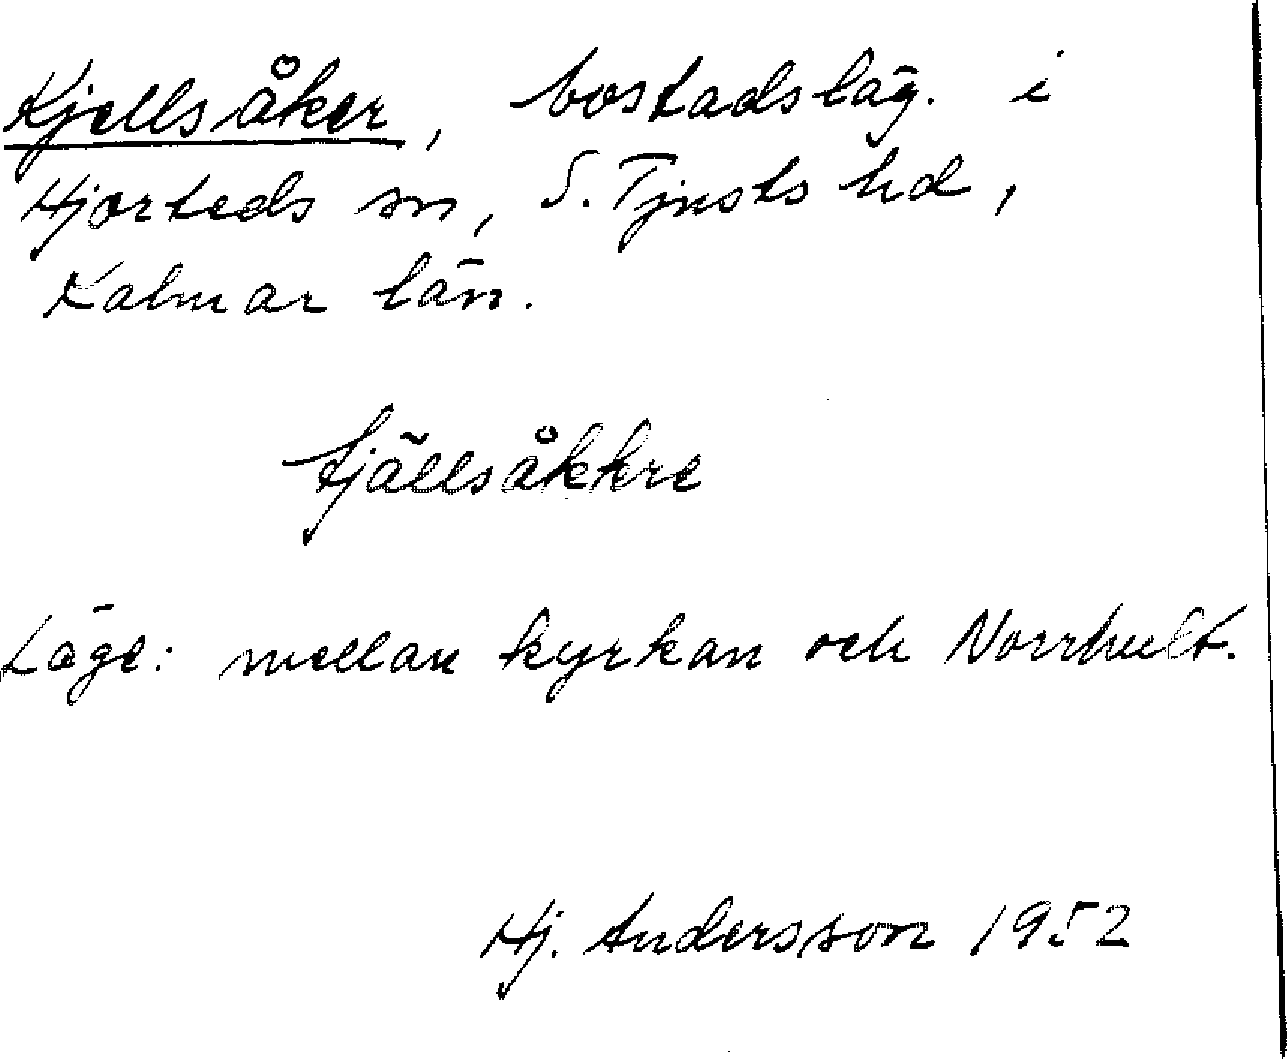 Kjellsåker, bostadsläg. i
Hjorteds sn, S. Tjusts hd,
Kalmar län.
tjällsåkkre
Läge: mellan kyrkan och Norrhult.
Hj. Andersson 1952